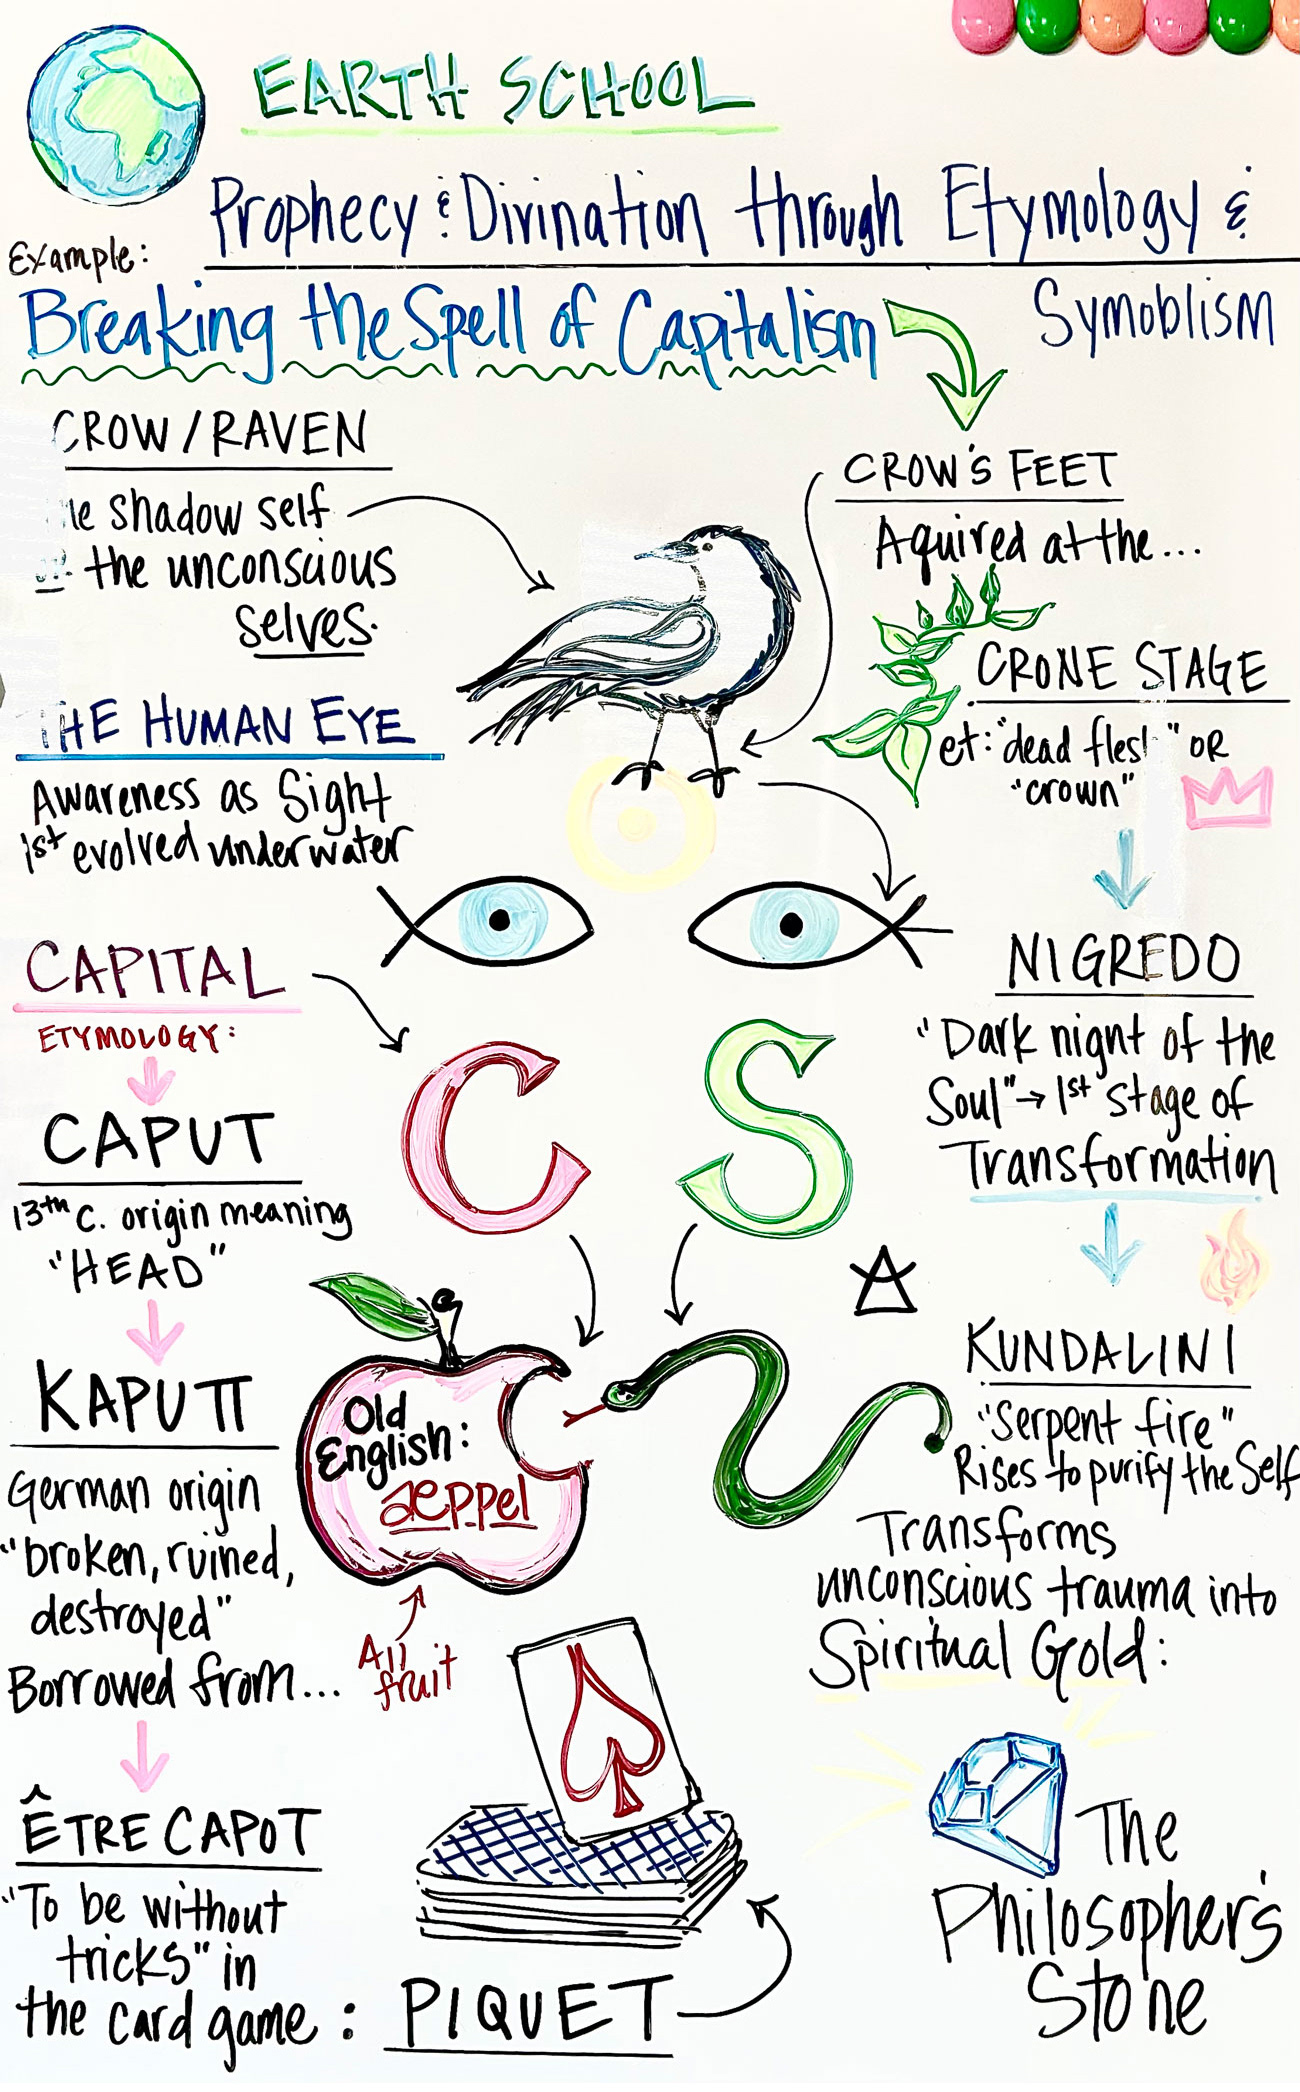 EARTH SCHOOL
Prophecy & Divination through Etymology &
Symoblism
Example:
Breaking the Spell of Capitalism
CROW / RAVEN
shadow self
the unconscious
selves.
THE HUMAN EYE
Awareness as Sight
1st evolved underwater
CAPITAL
ETYMOLOGY:
CAPUT
13th c. origin meaning
"HEAD"
KAPUTT
German origin
"broken, ruined,
destroyed"
Borrowed from...
ÊTRE CAPOT
"To be without
tricks" in
the card game: PIQUET
C S
Old
English:
æppel
All
fruit
CROW'S FEET
Aquired at the...
CRONE STAGE
et: "dead flesh" OR
"crown"
NIGREDO
"Dark night of the
Soul" → 1st stage of
Transformation
KUNDALINI
"Serpent fire"
Rises to purify the Self
Transforms
unconscious trauma into
Spiritual Gold:
The
Philosopher's
Stone